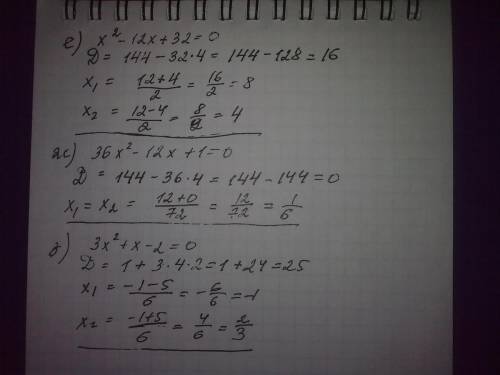 е) x² - 12x + 32 = 0
D = 144 - 32·4 = 144 - 128 = 16
x₁ = (12+4)/2 = 16/2 = 8
x₂ = (12-4)/2 = 8/2 = 4
ж) 36x² - 12x + 1 = 0
D = 144 - 36·4 = 144 - 144 = 0
x₁ = x₂ = (12+0)/72 = 12/72 = 1/6
з) 3x² + x - 2 = 0
D = 1 + 3·4·2 = 1 + 24 = 25
x₁ = (-1-5)/6 = -6/6 = -1
x₂ = (-1+5)/6 = 4/6 = 2/3